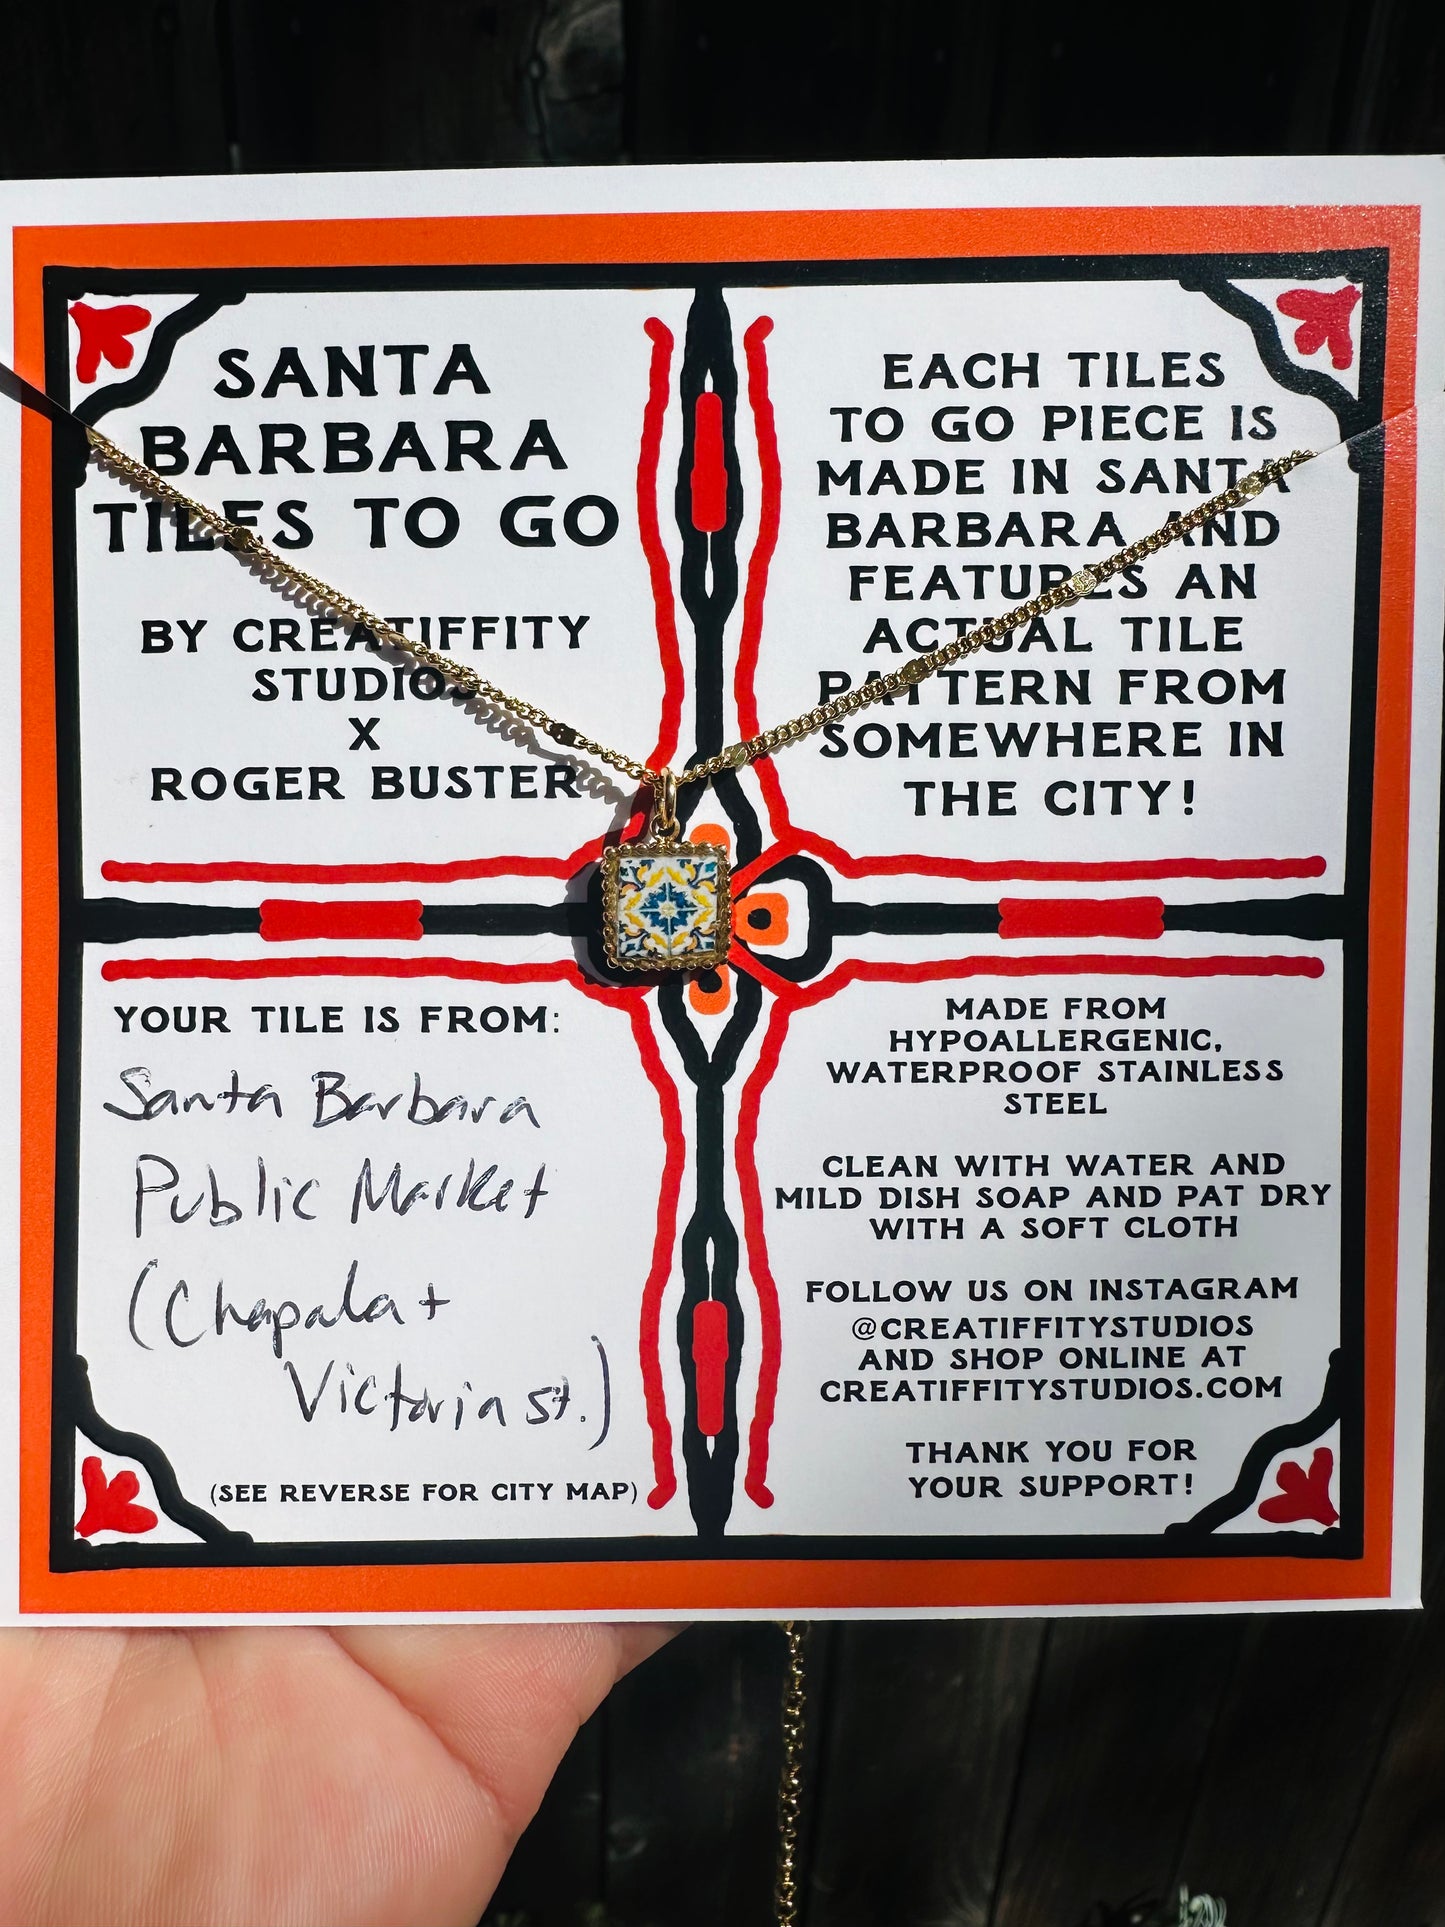 SANTA
BARBARA
TILES TO GO
BY CREATIFFITY
STUDIOS
X
ROGER BUSTER
EACH TILES
TO GO PIECE IS
MADE IN SANTA
BARBARA AND
FEATURES AN
ACTUAL TILE
PATTERN FROM
SOMEWHERE IN
THE CITY!
YOUR TILE IS FROM:
Santa Barbara
Public Market
(Chapala +
Victoria st.)
(SEE REVERSE FOR CITY MAP)
MADE FROM
HYPOALLERGENIC,
WATERPROOF STAINLESS
STEEL
CLEAN WITH WATER AND
MILD DISH SOAP AND PAT DRY
WITH A SOFT CLOTH
FOLLOW US ON INSTAGRAM
@CREATIFFITYSTUDIOS
AND SHOP ONLINE AT
CREATIFFITYSTUDIOS.COM
THANK YOU FOR
YOUR SUPPORT!